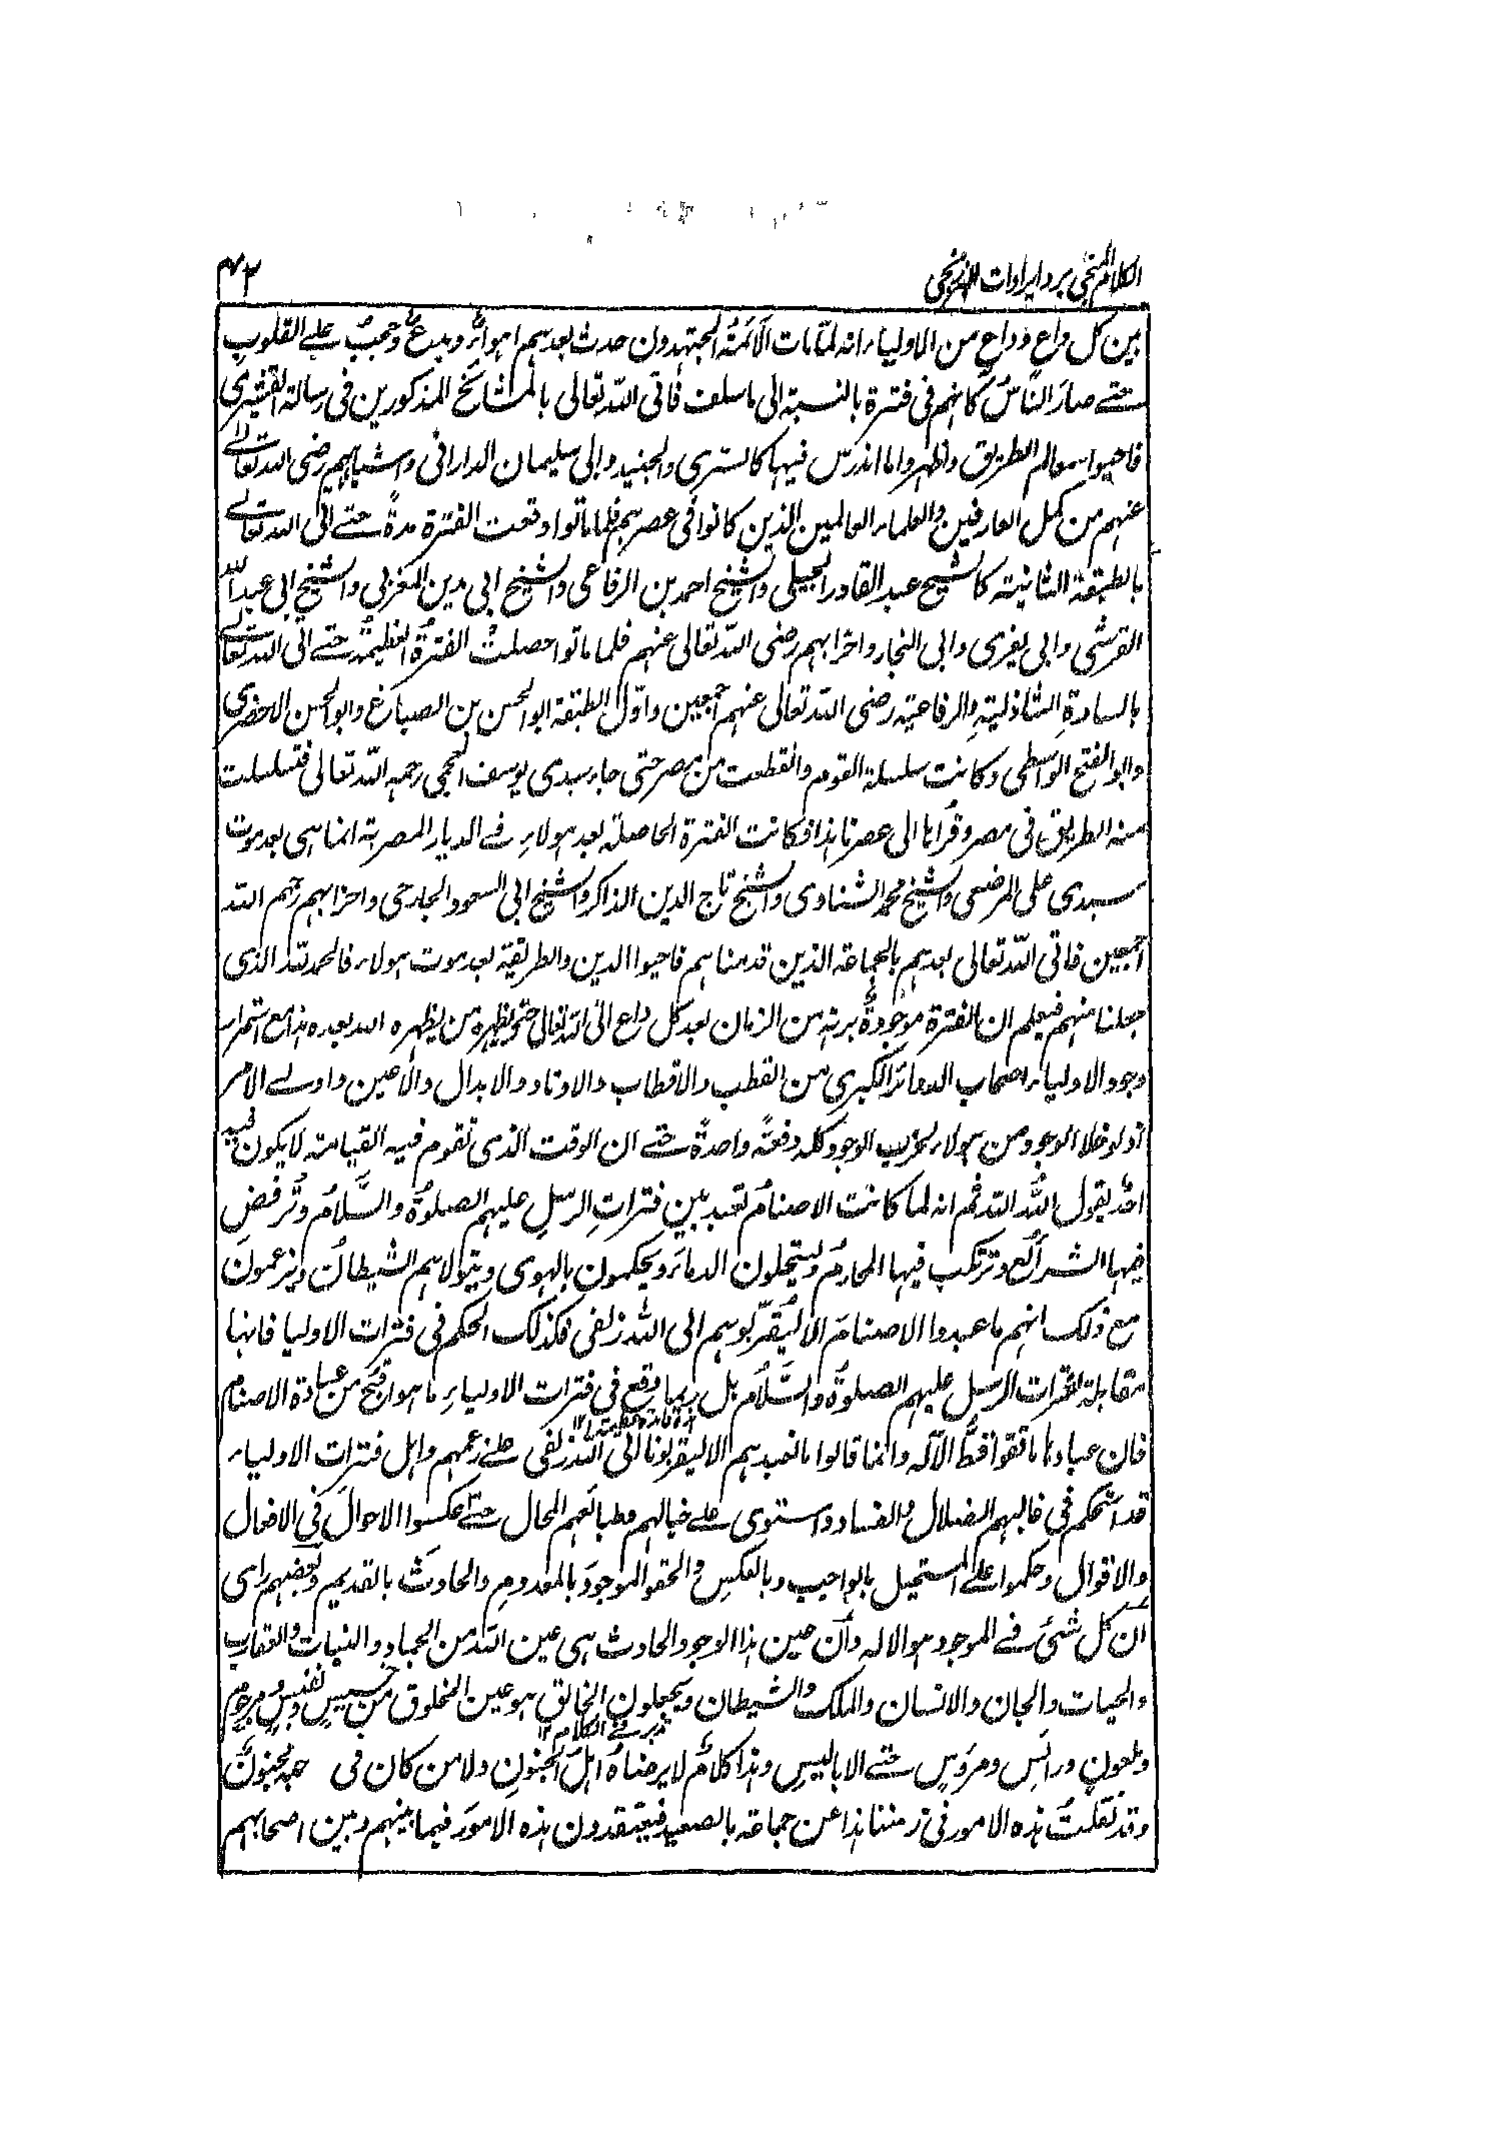 الكلام المنجى برد ايرادات البرزنجى
٤٣
بين كل داعٍ وداعٍ من الاولياء انه لما مات الائمةُ المجتهدون حدث بعدهم اهواءٌ وبدعٌ وحجبٌ على القلوبِ
حتى صارَ الناسُ كانهم فى فترة بالنسبة الى ما سلف فاتى الله تعالى بالمشائخ المذكورين فى رسالة القشيرى
فاحيوا معالم الطريق واظهروا ما اندرس فيها كالسرى والجنيد وابى سليمان الدارانى واشباههم رضى الله تعالى
عنهم من كمل العارفين والعلماء العالمين الذين كانوا فى عصرهم فلما ماتوا وقعت الفترة مدةً حتى اتى الله تعالى
بالطبقة الثانية كالشيخ عبد القادر الجيلى والشيخ احمد بن الرفاعى والشيخ ابى مدين المغربى والشيخ ابى عبد الله
القرشى وابى يعزى وابى النجار واحزابهم رضى الله تعالى عنهم فلما ماتوا حصلت الفترةُ العظيمةُ حتى اتى الله تعالى
بالسادةِ الشاذليةِ والرفاعيةِ رضى الله تعالى عنهم اجمعين واوّل الطبقة ابو الحسن بن الصباغ وابو الحسن الاحضرى
وابو الفتح الواسطى وكانت سلسلة القوم وانقطعت من مصر حتى جاء سيدى يوسف العجمى رحمه الله تعالى فتسلسلت
منه الطريق فى مصر وقراها الى عصرنا هذا فكانت الفترة الحاصلة بعد هولاء فى الديار المصرية انما هى بعد موت
سيدى على المرصفى والشيخ محمد الشناوى والشيخ تاج الدين الذاكر والشيخ ابى السعود الجارحى واحزابهم رحمهم الله
اجمعين فاتى الله تعالى بعدهم بالجماعة الذين قدمناهم فاحيوا الدين والطريقة بعد موت هولاء فالحمد لله الذى
جعلنا منهم فيعلم ان الفترة موجودةٌ برهة من الزمان بعد كل داع الى الله تعالى حتى يظهره من يظهره الله بعده هذا مع استمرار
وجود الاولياء اصحاب الدوائر الكبرى من القطب والاقطاب والاوتاد والابدال والأمين واولى الامر
اذ لو خلا الوجود من هولاء لخرب الوجود كله دفعةً واحدةً حتى ان الوقت الذى تقوم فيه القيامة لا يكون فيه
احدٌ يقول الله الله ثم انه لما كانت الاصنامُ تعبد بين فتراتِ الرسلِ عليهم الصلوةُ والسَّلامُ وتُرفضِ
فيها الشرائعُ وترتكب فيها المحارمُ ويستحلون الدماءَ ويحكمون بالهوى ويتولاهم الشيطانُ ويزعمونَ
مع ذلك انهم ما عبدوا الاصنامَ الا ليُقرّبوهم الى الله زلفى فكذلك الحكم فى فترات الاوليا فانها
مقابلة لفترات الرسل عليهم الصلوةُ والسَّلَامُ بل ربما وقع فى فترات الاولياءِ ما هو اقبح من عبادة الاصنام
هذه فائدة عظيمة ١٢
فان عبادها ما نفوا قطُّ الآله وانما قالوا ما نعبدهم الا ليقربونا الى الله زلفى على زعمهم واهل فترات الاولياء
قد استحكم فى غالبهم الضلال والفساد واستوى على خيالهم وطبائعهم المحال حتى عكسوا الاحوالَ فى الافعال
والاقوال وحكموا على المستحيل بالواجب وبالعكسِ والحقوا الموجودَ بالمعدومِ والحادثَ بالقديم وبعضهم راى
ان كل شئ فى الموجود هو الاله وأن عين هذا الوجود الحادث هى عين الله من الجماد والنبات والعقارب
والحيات والجان والانسان والملك والشيطان ويجعلون الخالق هو عين المخلوق من خسيسٍ ونفيسٍ ومرحومٍ
تدبر فى الكلام ١٢
وملعونٍ ورائسِ ومرؤسٍ حتى الاباليسِ وهذا كلامٌ لا يرضاهُ اهل الجنونِ ولا من كان فى حبه مجنونٌ
وقد نقلتُ هذه الامور فى زمننا هذا عن جماعة بالصعيد فيعتقدون هذه الامورَ فيما بينهم وبين اصحابهم